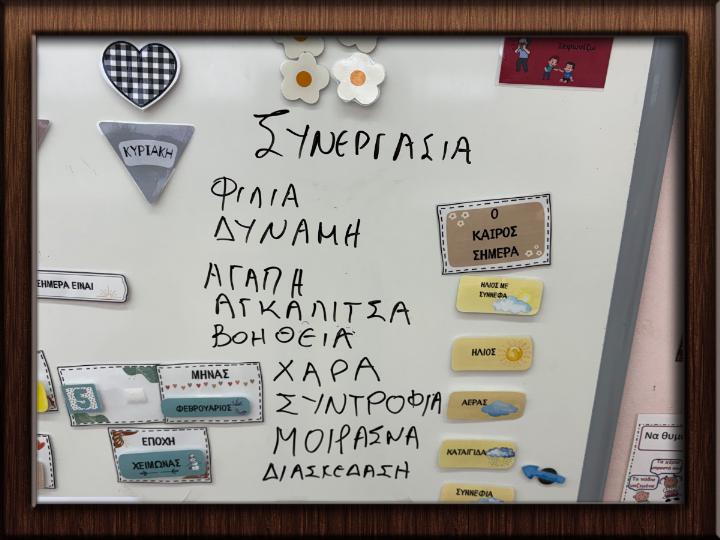 Ξεφωνίζω
ΣΥΝΕΡΓΑΣΙΑ
ΚΥΡΙΑΚΗ
ΦΙΛΙΑ
ΔΥΝΑΜΗ
Ο
ΚΑΙΡΟΣ
ΣΗΜΕΡΑ
ΣΗΜΕΡΑ ΕΙΝΑΙ
ΑΓΑΠΗ
ΑΓΚΑΛΙΤΣΑ
ΒΟΗΘΕΙΑ
ΗΛΙΟΣ ΜΕ
ΣΥΝΝΕΦΑ
ΗΛΙΟΣ
ΜΗΝΑΣ
ΦΕΒΡΟΥΑΡΙΟΣ
9
ΧΑΡΑ
ΣΥΝΤΡΟΦΙΑ
ΑΕΡΑΣ
ΕΠΟΧΗ
ΧΕΙΜΩΝΑΣ
ΜΟΙΡΑΣΝΑ
ΔΙΑΣΚΕΔΑΣΗ
ΚΑΤΑΙΓΙΔΑ
ΣΥΝΝΕΦΙΑ
Να θυμ